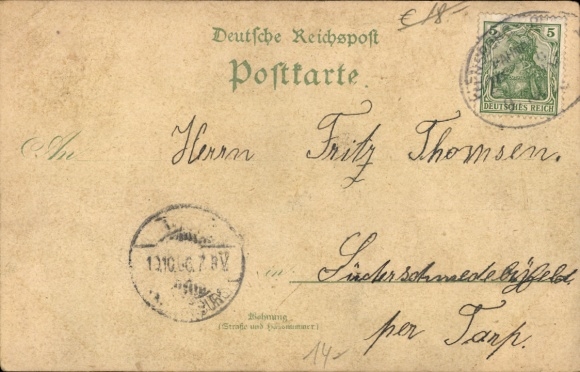 € 18-
Deutsche Reichspost
Postkarte
5
DEUTSCHES REICH
An
Herrn Fritz Thomsen.
in Süderschmedebyfeld.
Wohnung
(Straße und Hausnummer)
per Tarp.
14-